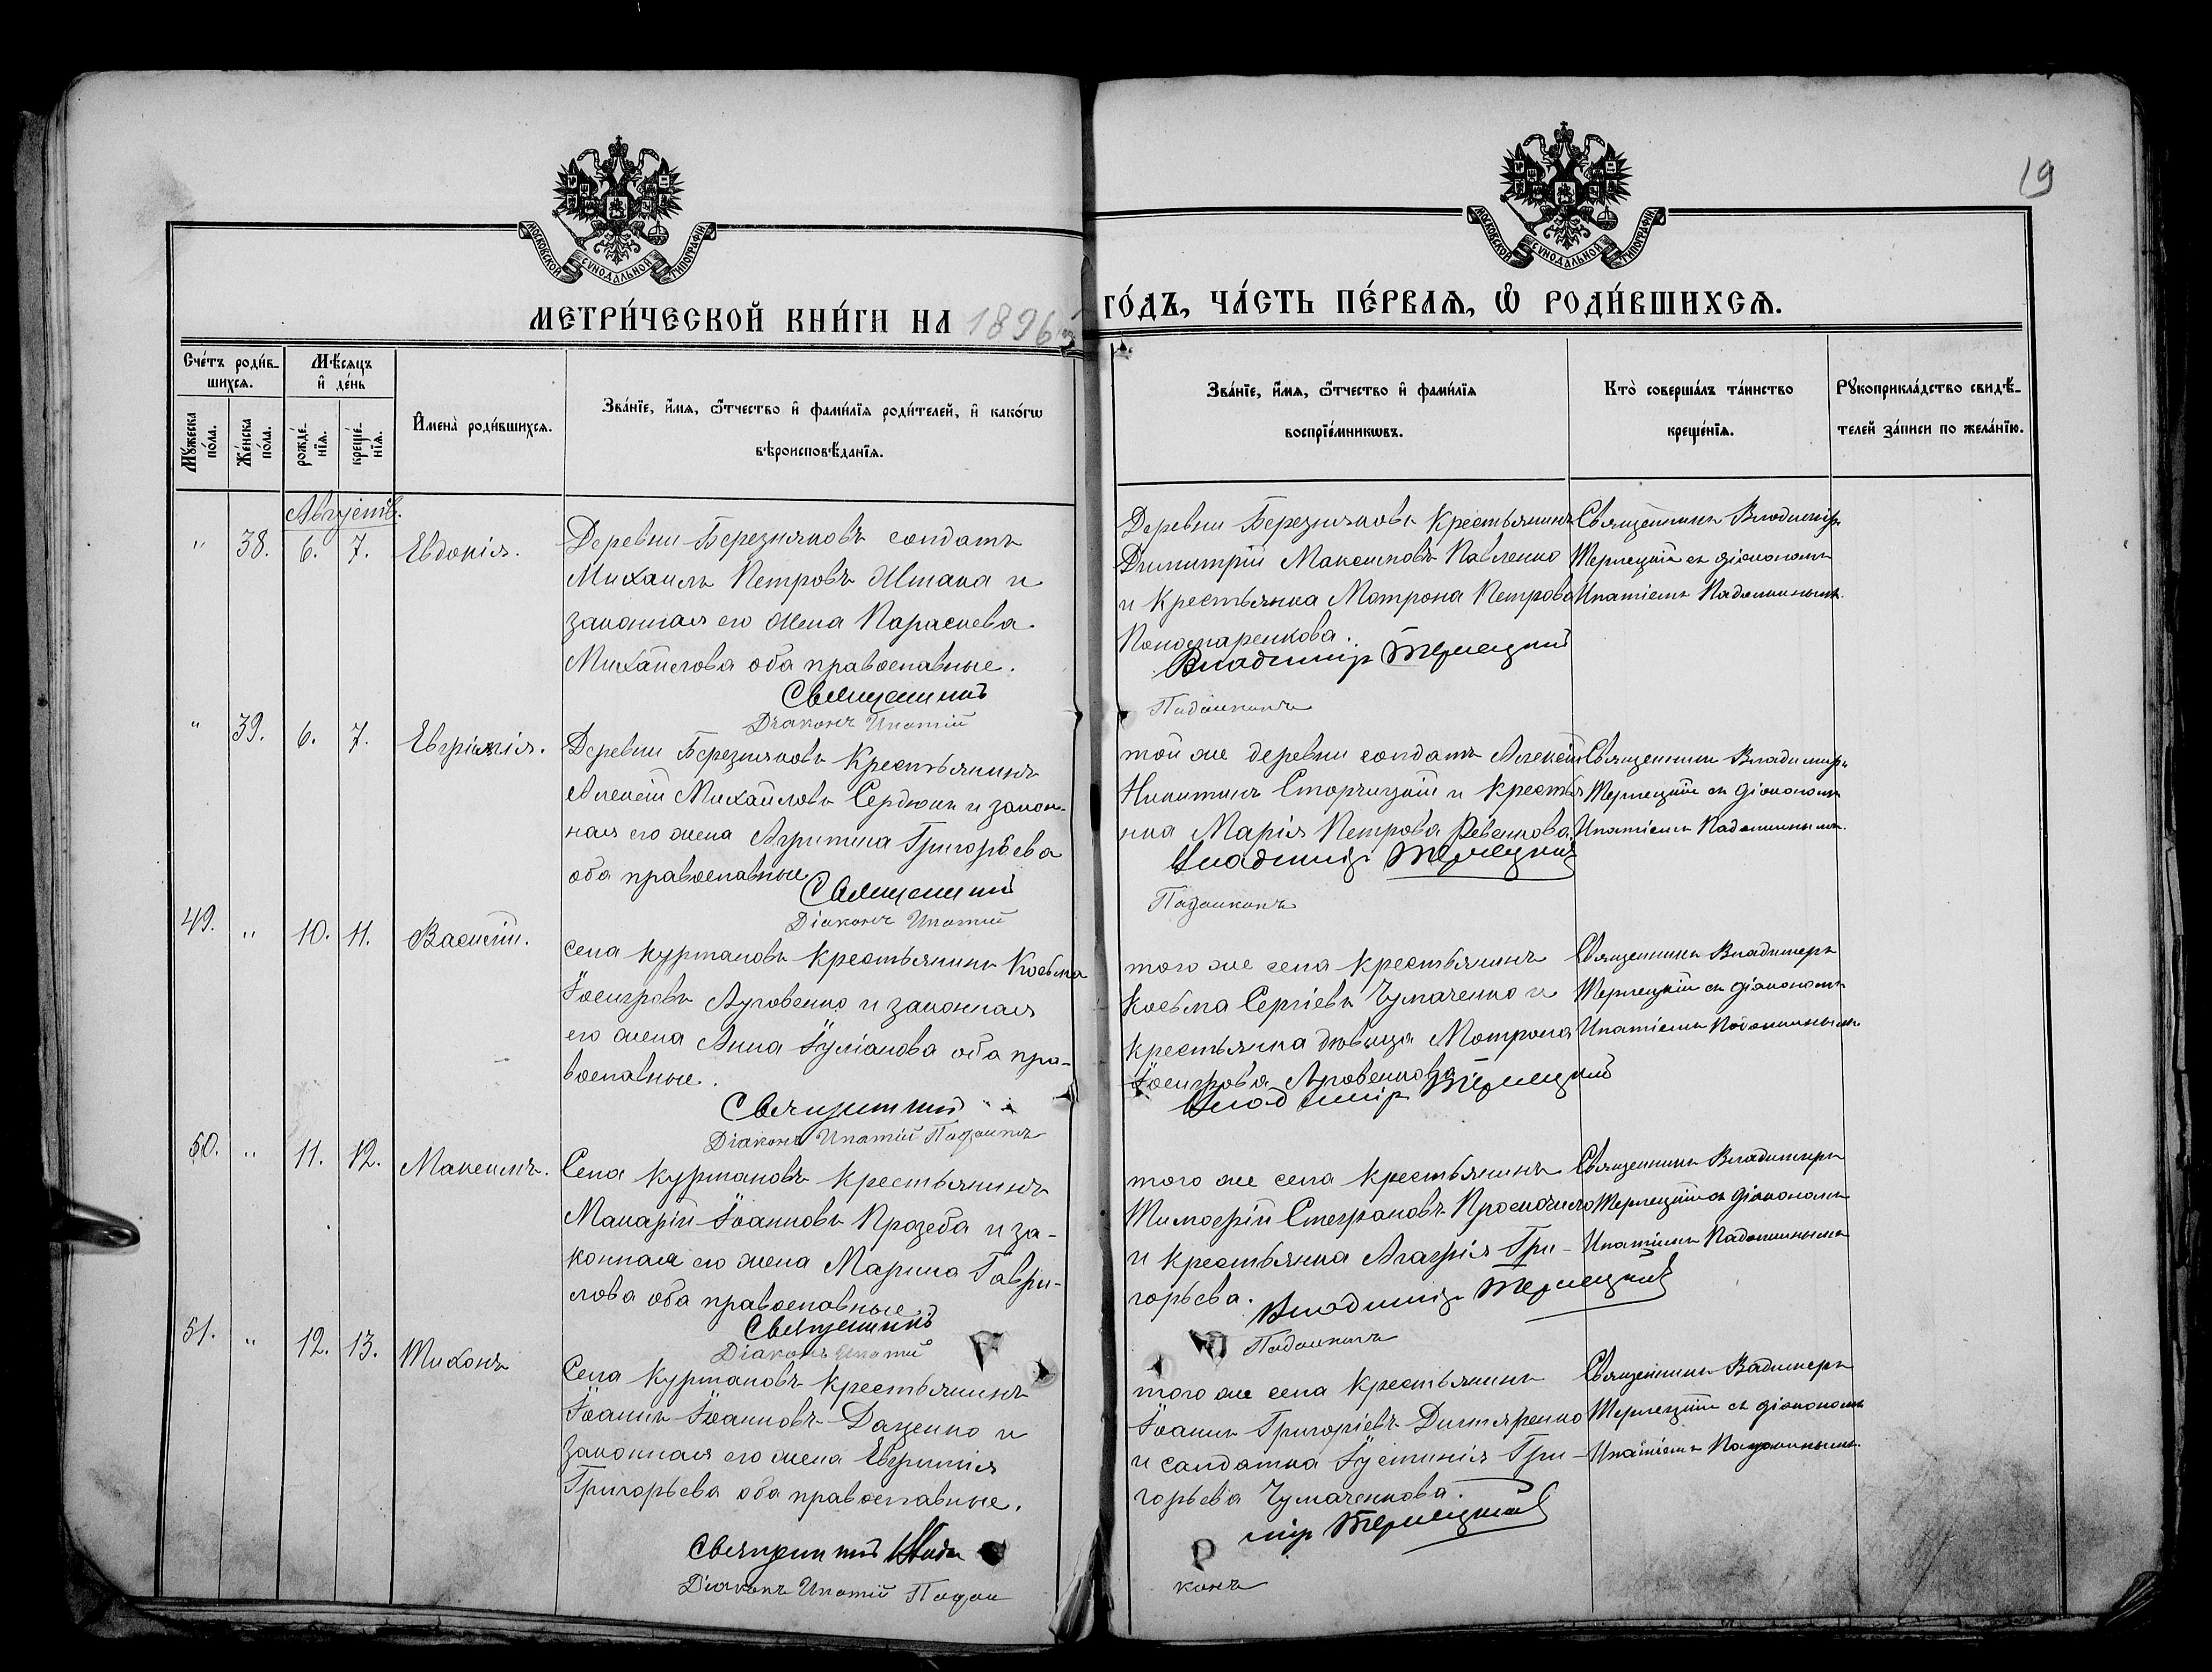 19
МОСКОВСКОЙ СѴНОДАЛЬНОЙ ТИПОГРАФІИ
МОСКОВСКОЙ СѴНОДАЛЬНОЙ ТИПОГРАФІИ
МЕТРИ́ЧЕСКОЙ КНИ́ГИ НА 1896 ГО́ДЪ, ЧА́СТЬ ПЕ́РВАѦ, Ѡ҆ РОДИ́ВШИХСѦ.
Сче́тъ роди́в-
шихсѧ.
Мꙋ́жеска по́ла.
Же́нска по́ла.
Мѣ́сѧцъ
и҆ де́нь
рожде́-
нїѧ.
креще́-
нїѧ.
И҆мена̀ роди́вшихсѧ.
Зва́нїе, и҆́мѧ, ѻ҆́тчество и҆ фами́лїѧ роди́телей, и҆ како́гѡ
вѣроисповѣ́данїѧ.
Зва́нїе, и҆́мѧ, ѻ҆́тчество и҆ фами́лїѧ
воспрїе́мникѡвъ.
Кто̀ соверша́лъ та́инство
креще́нїѧ.
Рꙋкоприкла́дство свидѣ́-
телей за́писи по жела́нїю.
Августъ.
" 38. 6. 7. Евдокія.
Деревни Березняковъ солдатъ
Михаилъ Петровъ и
законная его жена Параскева
Михайлова оба православные.
Священникъ
Діаконъ Ипатій
Деревни Березняковъ Крестьянинъ
Димитрій Максимовъ Павленко
и крестьянка Мотрона Петрова
Владиміръ Терлецкій
Священникъ Владиміръ
Терлецкій съ діакономъ
Ипатіемъ
" 39. 6. 7.
Деревни Березняковъ Крестьянинъ
Алексій Михайловъ Сердюкъ и закон-
ная его жена Агрипина Григорьева
оба православные
Священникъ
Діаконъ Ипатій
той же деревни солдатъ Алексій
Никитинъ и крестья
нка Марія Петрова
Владиміръ Терлецкій
Священникъ Владиміръ
Терлецкій съ діакономъ
Ипатіемъ
49. " 10. 11. Василій.
села Курмановъ крестьянинъ Косьма
Іосифовъ Луговенко и законная
его жена Анна Іуліанова оба пра-
вославные.
Священникъ
Діаконъ Ипатій
того же села крестьянинъ
Косьма Сергіевъ Чумаченко и
крестьянка дѣвица Мотрона
Іосифова Луговенкова
Владиміръ Терлецкій
Священникъ Владимиръ
Терлецкій съ діакономъ
Ипатіемъ
50. " 11. 12. Максимъ.
Села Курмановъ крестьянинъ
Макарій Іоанновъ Прозеба и за-
конная его жена Марина Гаври-
лова оба православные
Священникъ
Діаконъ Ипатій
того же села крестьянинъ
Тимофей Стефановъ
и крестьянка Агафія Гри-
горьева.
Владиміръ Терлецкій
Священникъ Владимиръ
Терлецкій съ діакономъ
Ипатіемъ
51. " 12. 13. Тихонъ
Села Курмановъ крестьянинъ
Іоаннъ Іоанновъ Даценко и
законная его жена
Григорьева оба православные.
Священникъ
Діаконъ Ипатій
того же села крестьянинъ
Іоаннъ Григоріевъ
и солдатка Іустинія Гри-
горьева Чумаченкова.
міръ Терлецкій
Священникъ
Терлецкій съ діакономъ
Ипатіемъ